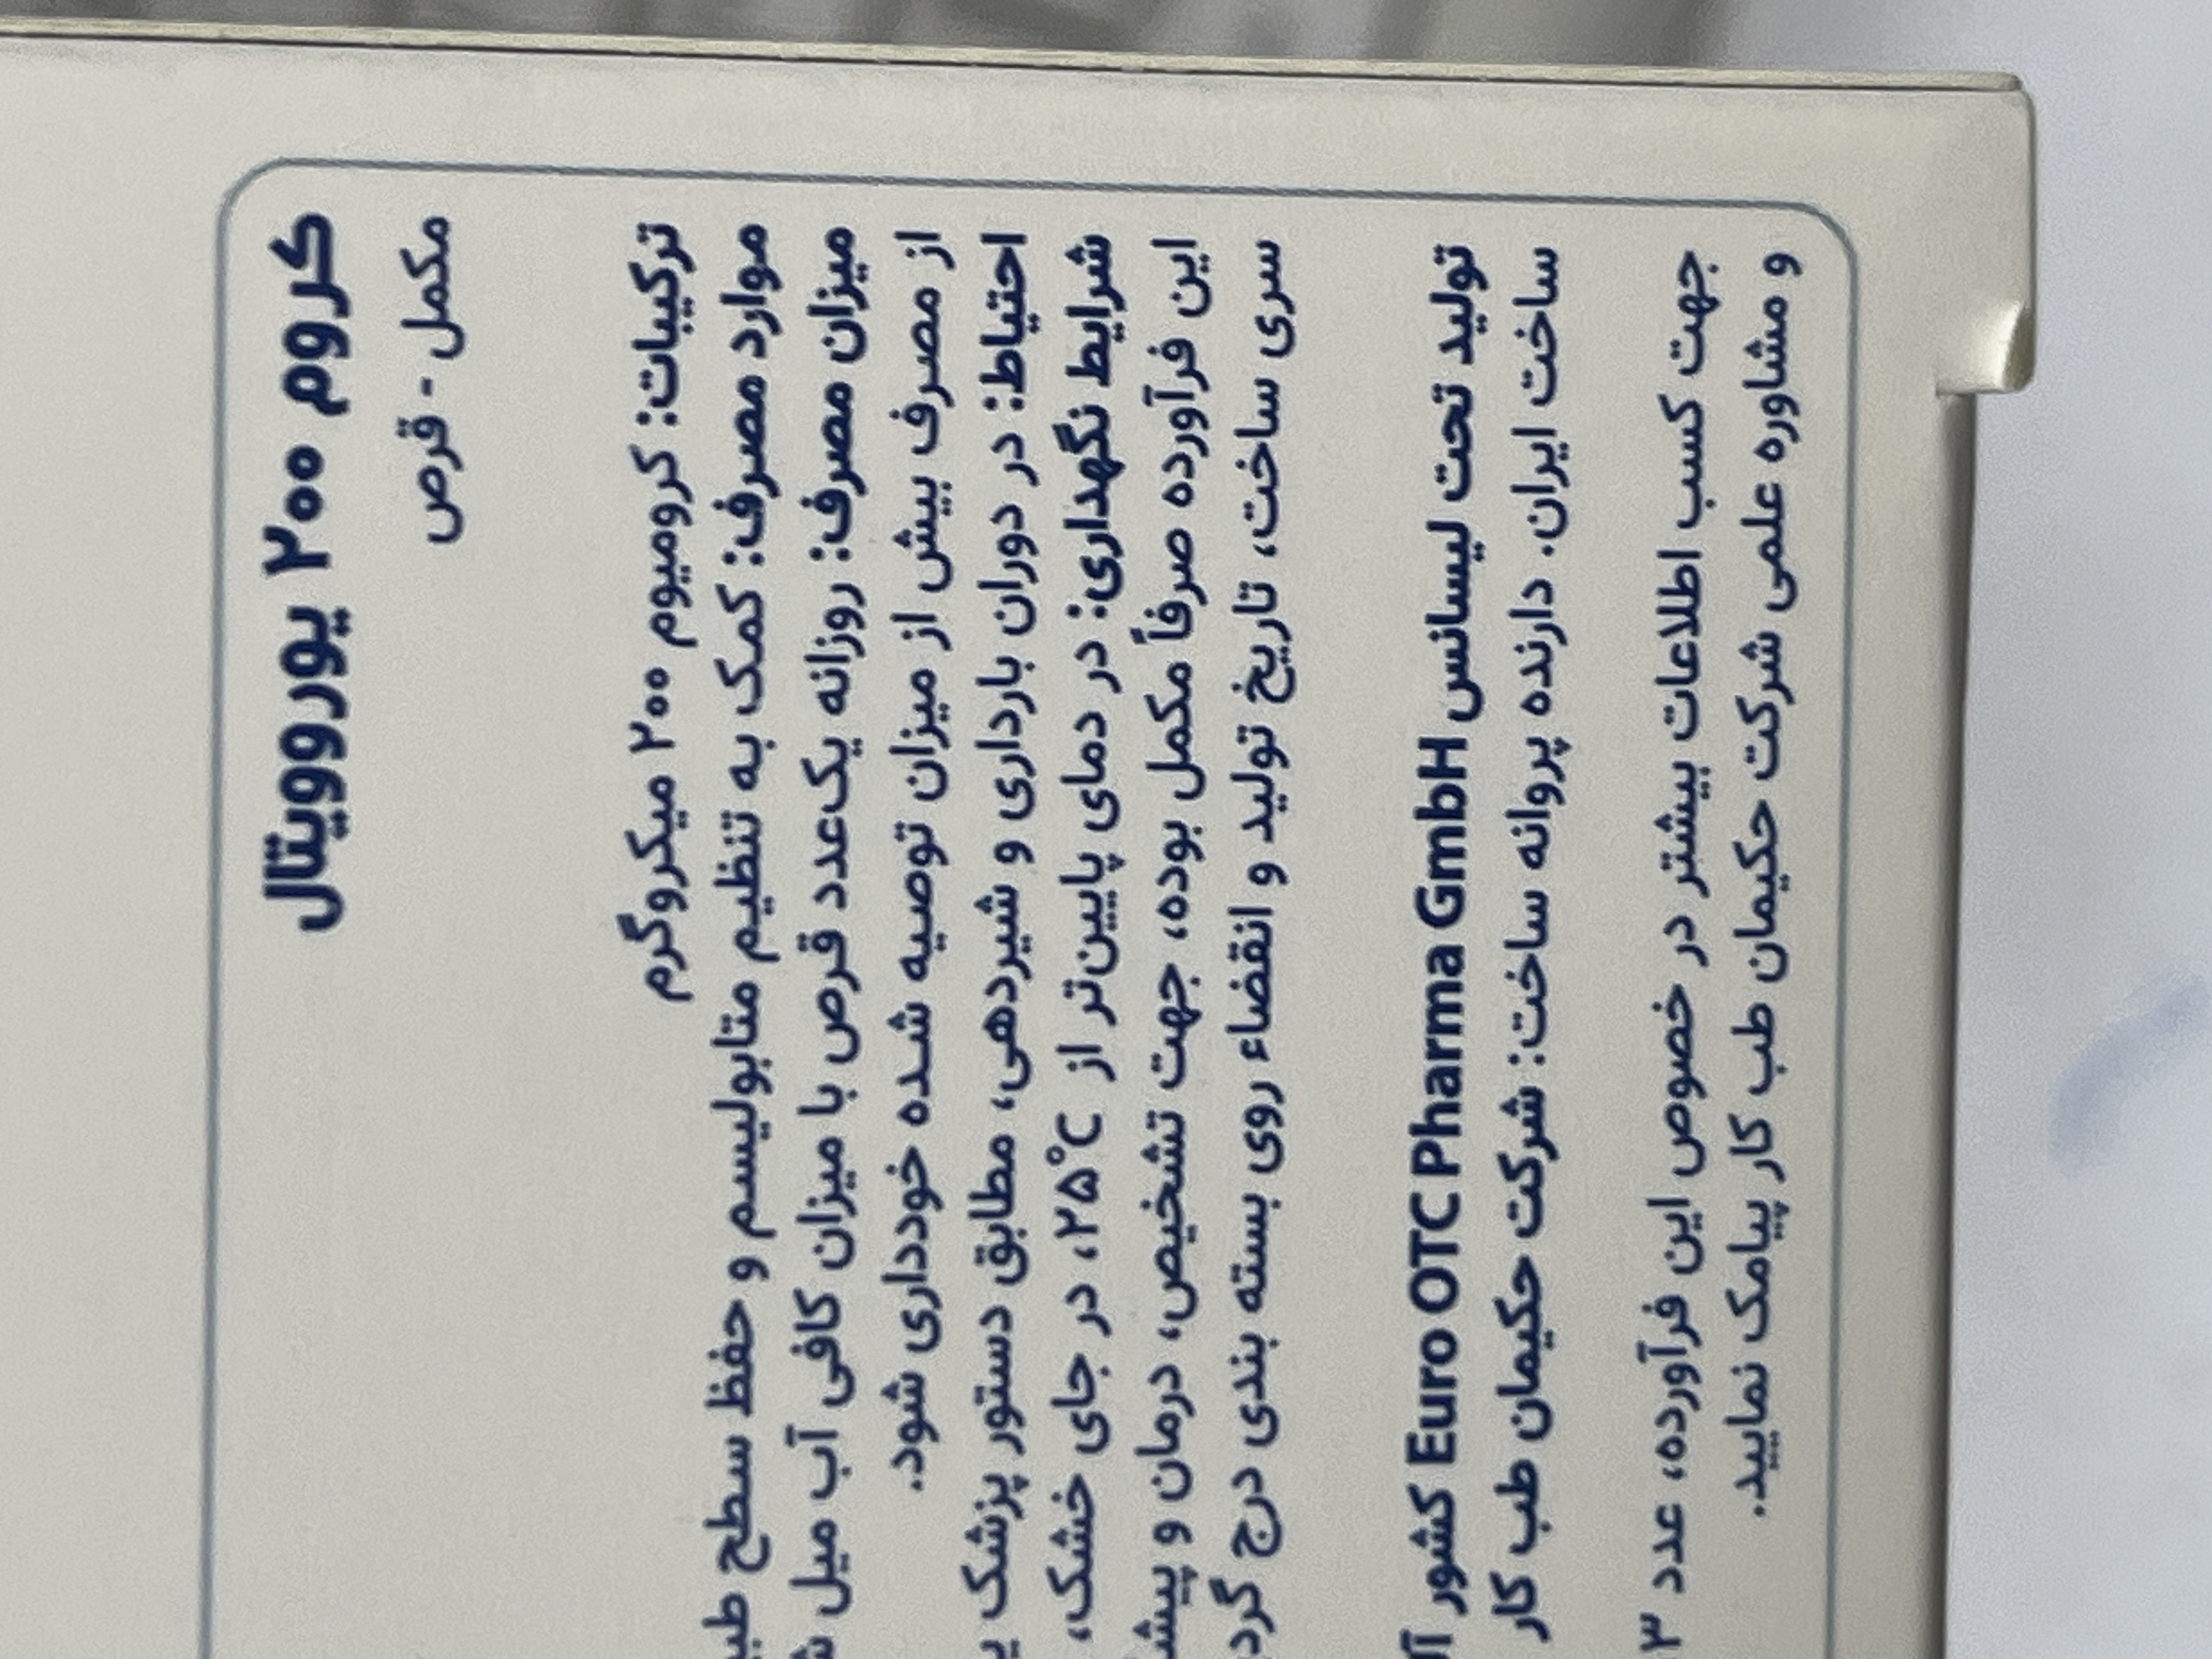 کروم ۲۰۰ یوروویتال
مکمل - قرص
ترکیبات: کرومیوم ۲۰۰ میکروگرم
موارد مصرف: کمک به تنظیم متابولیسم و حفظ سطح
میزان مصرف: روزانه یک‌عدد قرص با میزان کافی آب میل
از مصرف بیش از میزان توصیه شده خودداری شود.
احتیاط: در دوران بارداری و شیردهی، مطابق دستور پزشک
شرایط نگهداری: در دمای پایین‌تر از ۲۵°C، در جای خشک،
این فرآورده صرفاً مکمل بوده، جهت تشخیص، درمان و
سری ساخت، تاریخ تولید و انقضاء روی بسته بندی درج
تولید تحت لیسانس Euro OTC Pharma GmbH کشور
ساخت ایران. دارنده پروانه ساخت: شرکت حکیمان طب کار
جهت کسب اطلاعات بیشتر در خصوص این فرآورده، عدد ۳
و مشاوره علمی شرکت حکیمان طب کار پیامک نمایید.